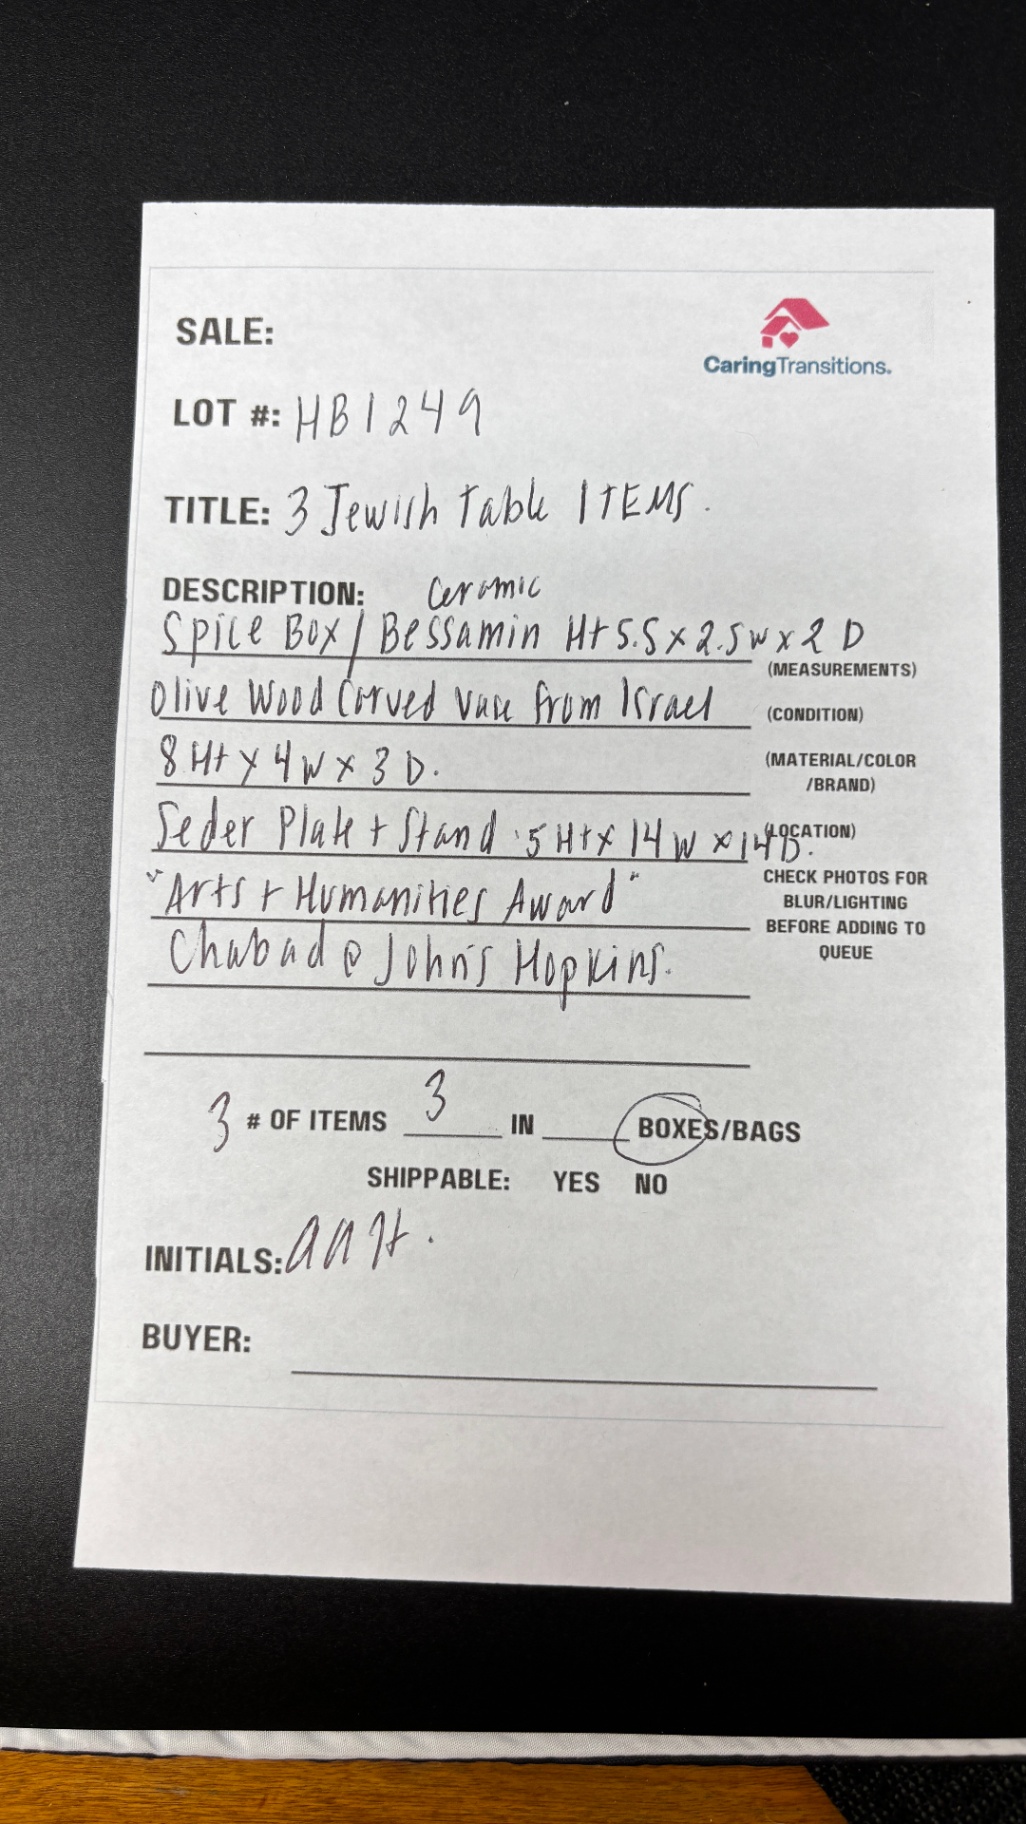 SALE:
CaringTransitions.
LOT #: HB1249
TITLE: 3 Jewish Table ITEMS.
DESCRIPTION: Ceramic
Spice Box/Bessamin Ht 5.5 x 2.5 w x 2 D
(MEASUREMENTS)
Olive Wood Carved Vase from Israel
(CONDITION)
8 Ht x 4 W x 3 D.
(MATERIAL/COLOR
/BRAND)
Seder Plate + Stand .5 Ht x 14 W x 14 D.
(LOCATION)
"Arts + Humanities Award"
CHECK PHOTOS FOR
BLUR/LIGHTING
BEFORE ADDING TO
QUEUE
Chabad @ John's Hopkins.
3 # OF ITEMS 3 IN BOXES/BAGS
SHIPPABLE: YES NO
INITIALS: aaH.
BUYER: